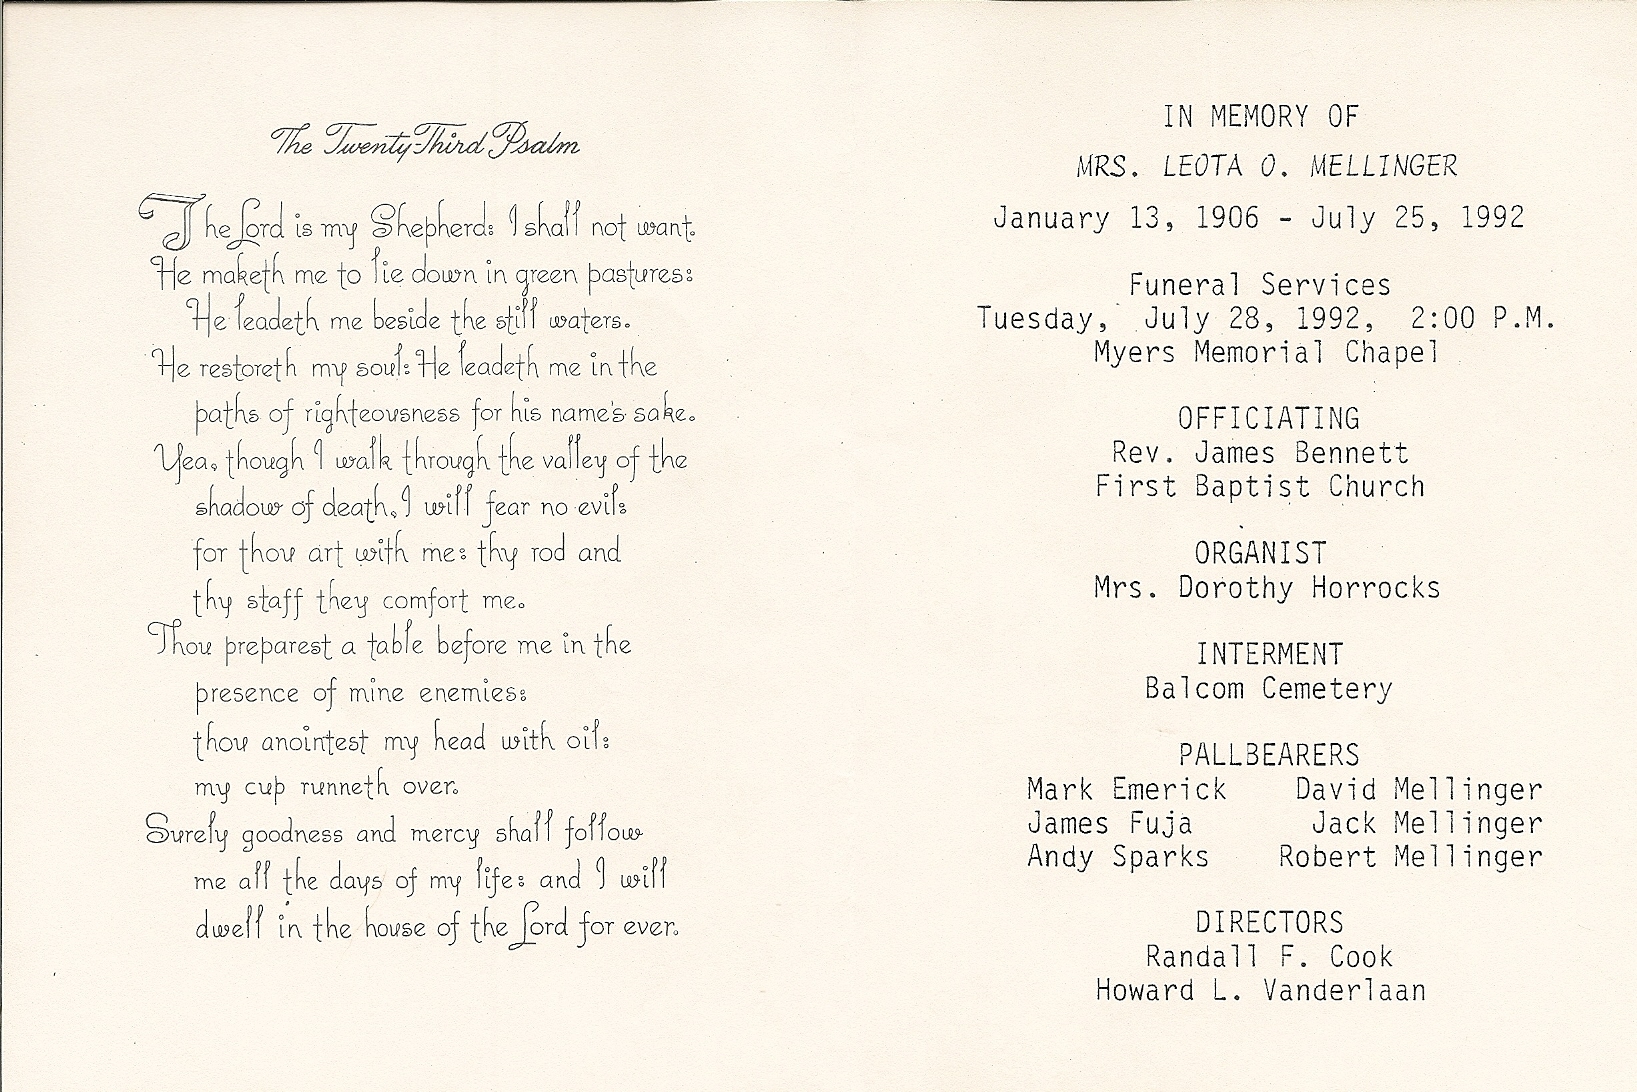 The Twenty-Third Psalm
The Lord is my Shepherd: I shall not want.
He maketh me to lie down in green pastures:
He leadeth me beside the still waters.
He restoreth my soul: He leadeth me in the
paths of righteousness for his name's sake.
Yea, though I walk through the valley of the
shadow of death, I will fear no evil:
for thou art with me: thy rod and
thy staff they comfort me.
Thou preparest a table before me in the
presence of mine enemies:
thou anointest my head with oil:
my cup runneth over.
Surely goodness and mercy shall follow
me all the days of my life: and I will
dwell in the house of the Lord for ever.
IN MEMORY OF
MRS. LEOTA O. MELLINGER
January 13, 1906 - July 25, 1992
Funeral Services
Tuesday, July 28, 1992, 2:00 P.M.
Myers Memorial Chapel
OFFICIATING
Rev. James Bennett
First Baptist Church
ORGANIST
Mrs. Dorothy Horrocks
INTERMENT
Balcom Cemetery
PALLBEARERS
Mark Emerick David Mellinger
James Fuja Jack Mellinger
Andy Sparks Robert Mellinger
DIRECTORS
Randall F. Cook
Howard L. Vanderlaan